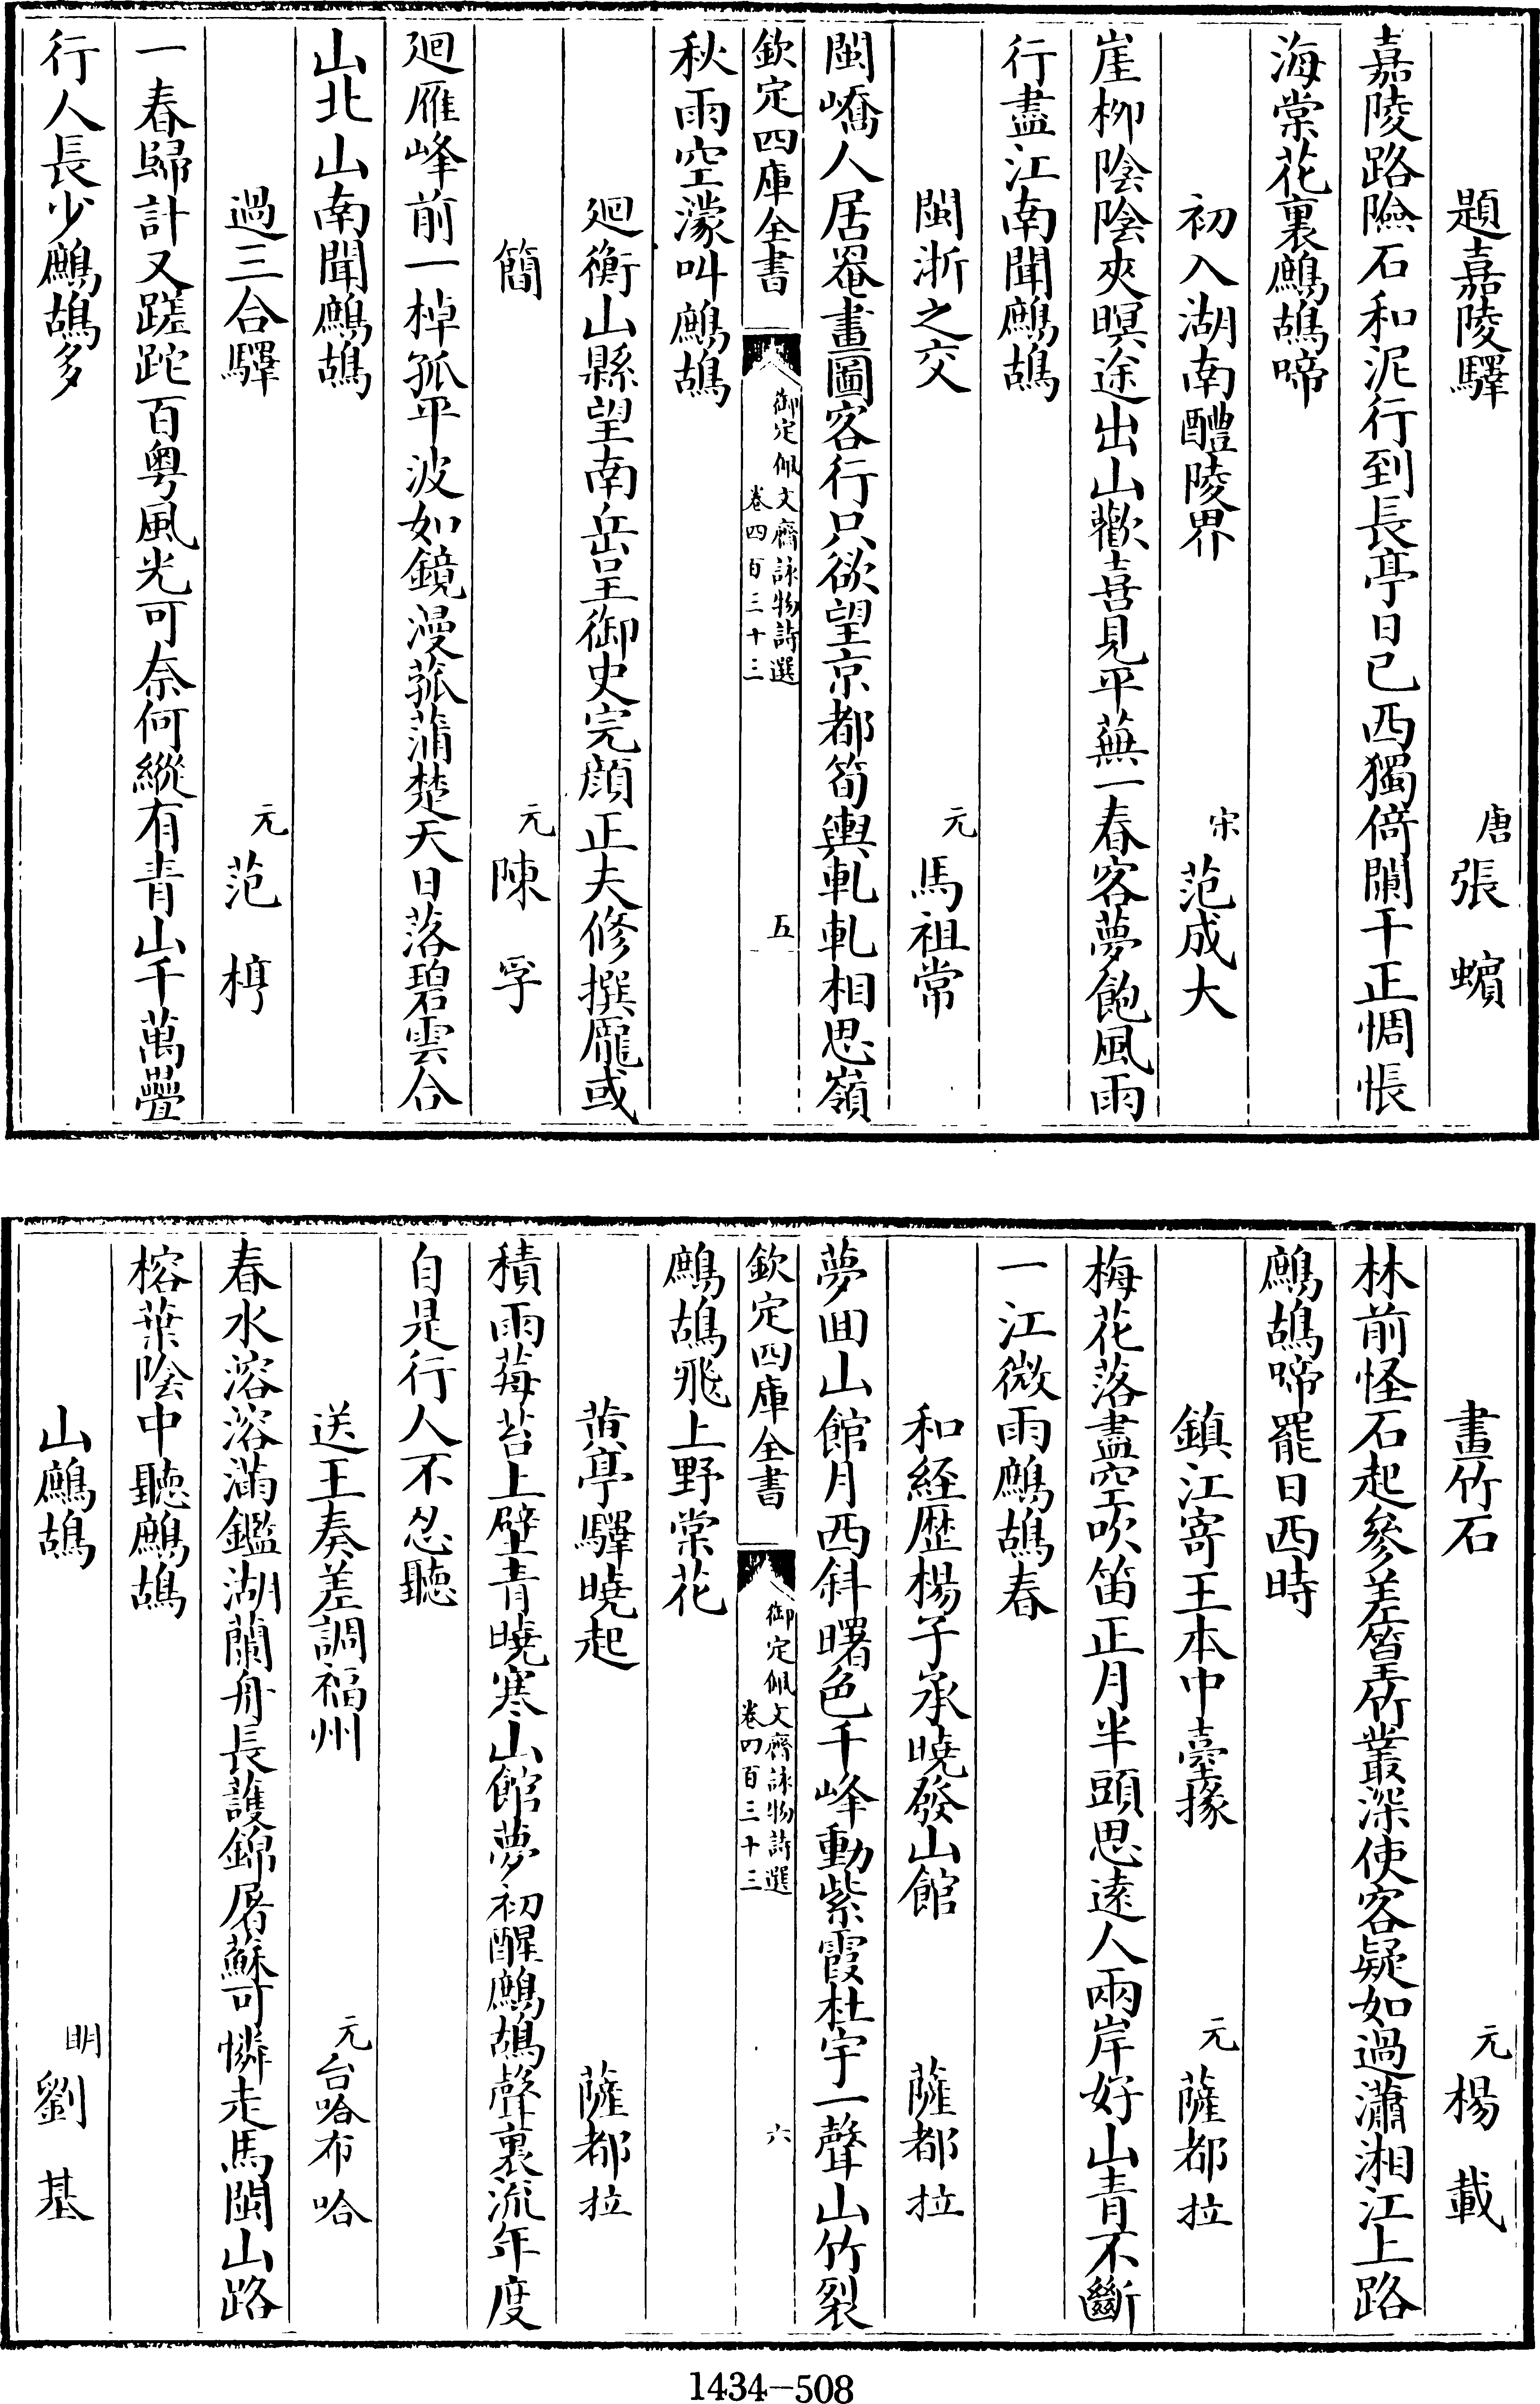 題嘉陵驛 唐 張蠙
嘉陵路險石和泥行到長亭日已西獨倚闌干正惆悵
海棠花裏鷓鴣啼
初入湖南醴陵界 宋 范成大
崖柳陰陰夾暝途出山歡喜見平蕪一春客夢飽風雨
行盡江南聞鷓鴣
閩浙之交 元 馬祖常
閩嶠人居罨畫圖客行只欲望京都筍輿軋軋相思嶺
欽定四庫全書 御定佩文齋詠物詩選 卷四百三十三 五
秋雨空濛叫鷓鴣
廻衡山縣望南岳呈御史完顔正夫修撰龎或
簡 元 陳孚
廻雁峰前一棹孤平波如鏡漫菰蒲楚天日落碧雲合
山北山南聞鷓鴣
過三合驛 元 范梈
一春歸計又蹉跎百粤風光可奈何縱有青山千萬疊
行人長少鷓鴣多
畫竹石 元 楊載
林前怪石起參差篁竹叢深使客疑如過瀟湘江上路
鷓鴣啼罷日西時
鎮江寄王本中臺掾 元 薩都拉
梅花落盡空吹笛正月半頭思遠人兩岸好山青不斷
一江微雨鷓鴣春
和経歴楊子承曉發山館 薩都拉
夢回山館月西斜曙色千峰動紫霞杜宇一聲山竹裂
欽定四庫全書 御定佩文齋詠物詩選 卷四百三十三 六
鷓鴣飛上野棠花
黄亭驛曉起 薩都拉
積雨莓苔上壁青曉寒山館夢初醒鷓鴣聲裏流年度
自是行人不忍聽
送王奏差調福州 元 台哈布哈
春水溶溶滿鑑湖蘭舟長護錦屠蘇可憐走馬閩山路
榕葉陰中聽鷓鴣
山鷓鴣 明 劉基
1434-508